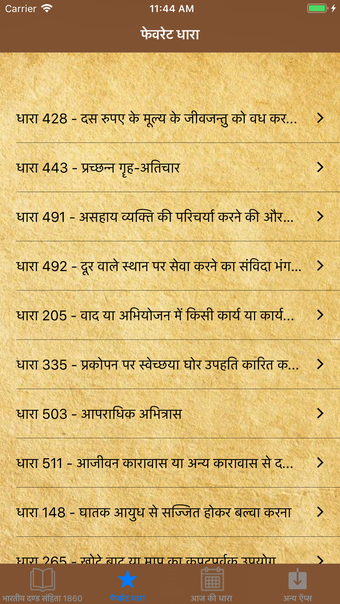 Carrier 11:44 AM
फेवरेट धारा
धारा 428 - दस रुपए के मूल्य के जीवजन्तु को वध कर...
धारा 443 - प्रच्छन्न गॄह-अतिचार
धारा 491 - असहाय व्यक्ति की परिचर्या करने की और...
धारा 492 - दूर वाले स्थान पर सेवा करने का संविदा भंग...
धारा 205 - वाद या अभियोजन में किसी कार्य या कार्य...
धारा 335 - प्रकोपन पर स्वेच्छया घोर उपहति कारित क...
धारा 503 - आपराधिक अभित्रास
धारा 511 - आजीवन कारावास या अन्य कारावास से द...
धारा 148 - घातक आयुध से सज्जित होकर बल्वा करना
धारा 265 - खोटे बाट या माप का कपटपूर्वक उपयोग
भारतीय दण्ड संहिता 1860 फेवरेट धारा आज की धारा अन्य ऍप्स